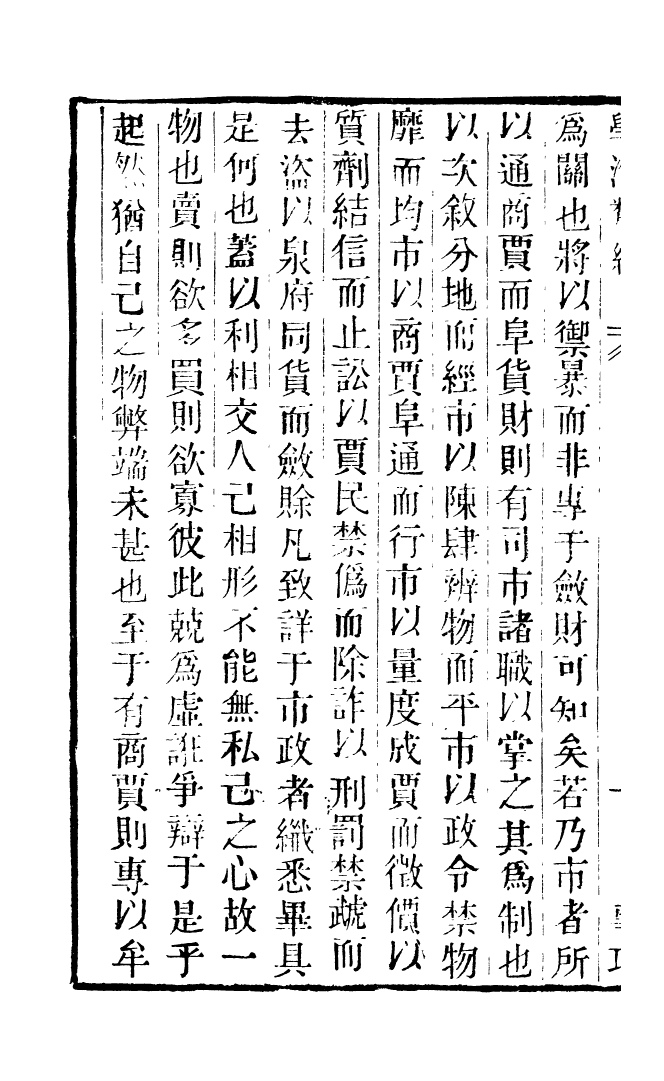 爲關也將以禦暴而非專于斂財可知矣若乃市者所
以通商賈而阜貨財則有司市諸職以掌之其爲制也
以次敘分地而經市以陳肆辨物而平市以政令禁物
靡而均市以商賈阜通而行市以量度成賈而徵價以
質劑結信而止訟以賈民禁僞而除詐以刑罰禁虣而
去盜以泉府同貨而斂賒凡致詳于市政者纖悉畢具
是何也蓋以利相交人己相形不能無私己之心故一
物也賣則欲多買則欲寡彼此兢爲虛誑爭辯于是乎
起然猶自己之物弊端未甚也至于有商賈則專以牟